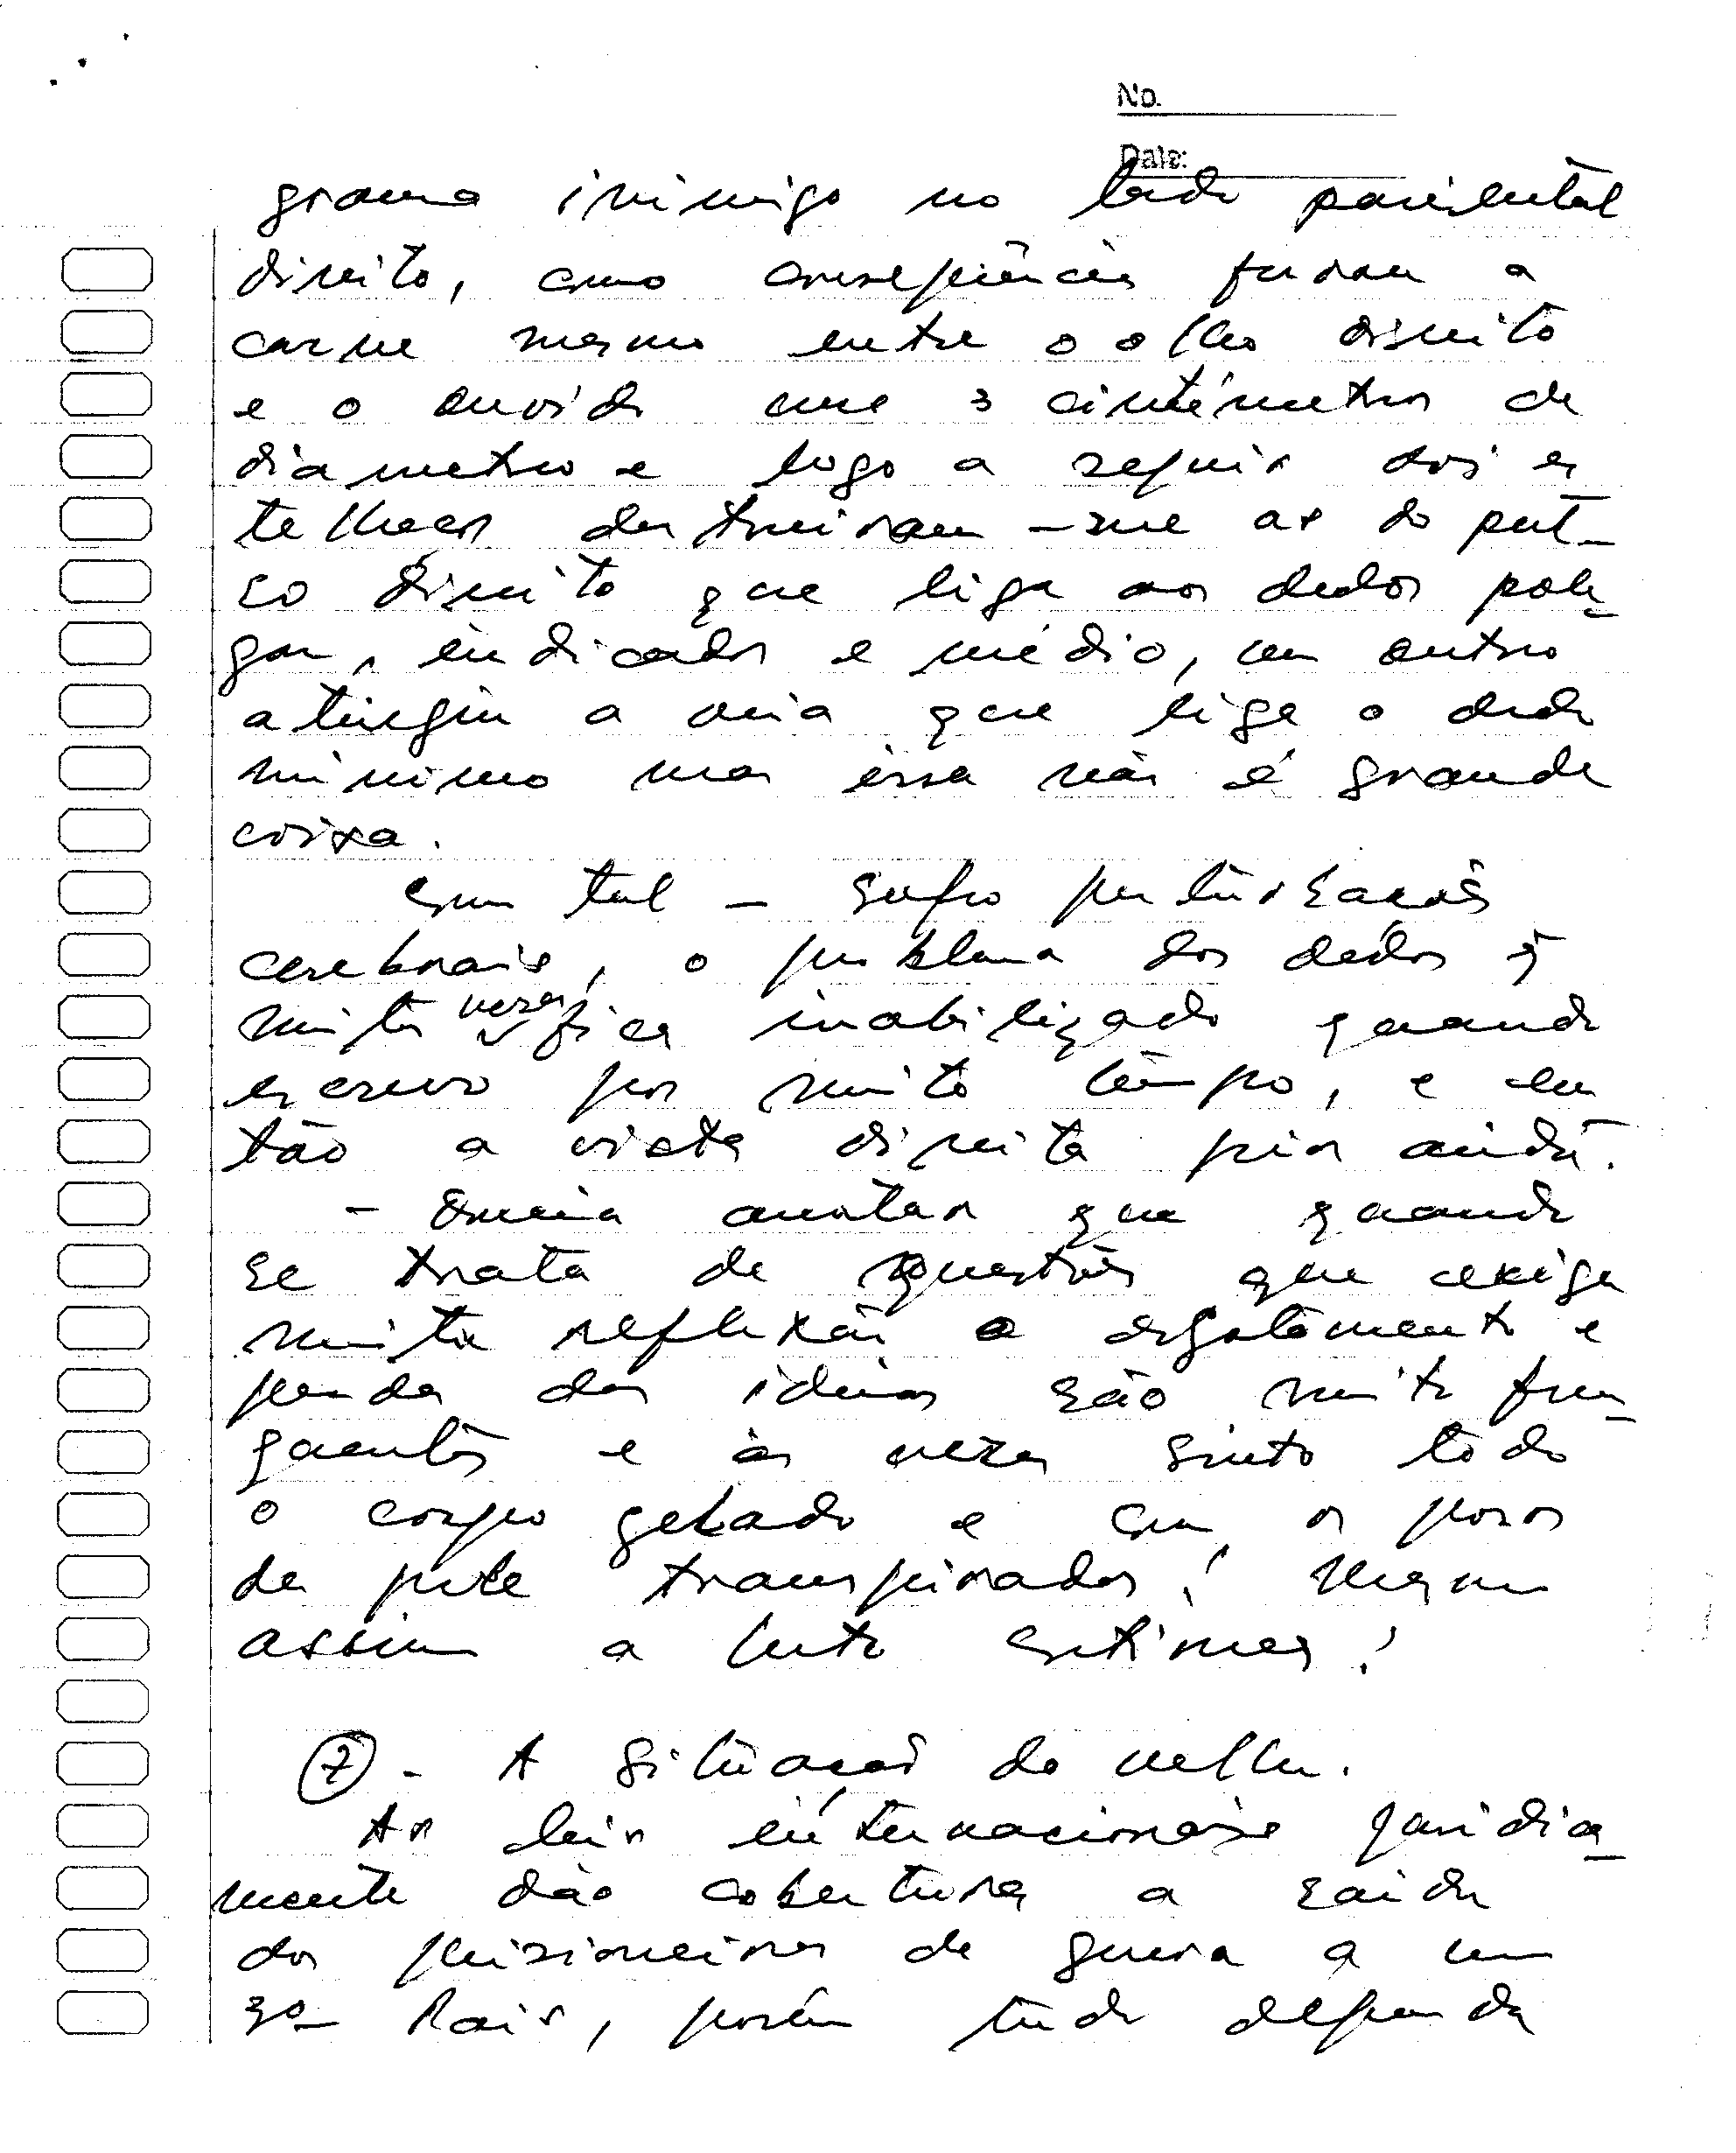 No.
Date:
grama inimigo no lado pariental
direito, como consequência furou a
carne mesmo entre o olho direito
e o ouvido uns 3 cintémetros de
diametro e logo a seguir dois es
telhaços destruiram-me as do pul-
so direito que liga aos dedos pole-
gar, indicador e médio, um outro
atingiu a veia que liga o dedo
minimo mas essa não é grande
coisa.
Com tal - sofro perturbações
cerebrais, o problema dos dedos
muitas vezes fica inabilizado quando
escrevo por muito tempo, e en
tão a vista direita pior ainda.
- Queria anotar que quando
se trata de questões que exige
muita reflexão o esgotamento e
perda das ideias são muito fre-
quentes e às vezes sinto todo
o corpo gelado e com os poros
da pele transpirados! Mesmo
assim a luta continua!
7 - A situação do velho.
As leis internacionais juridica-
mente dão cobertura a saida
dos prisioneiros de guerra a um
3º País, porém tudo depende